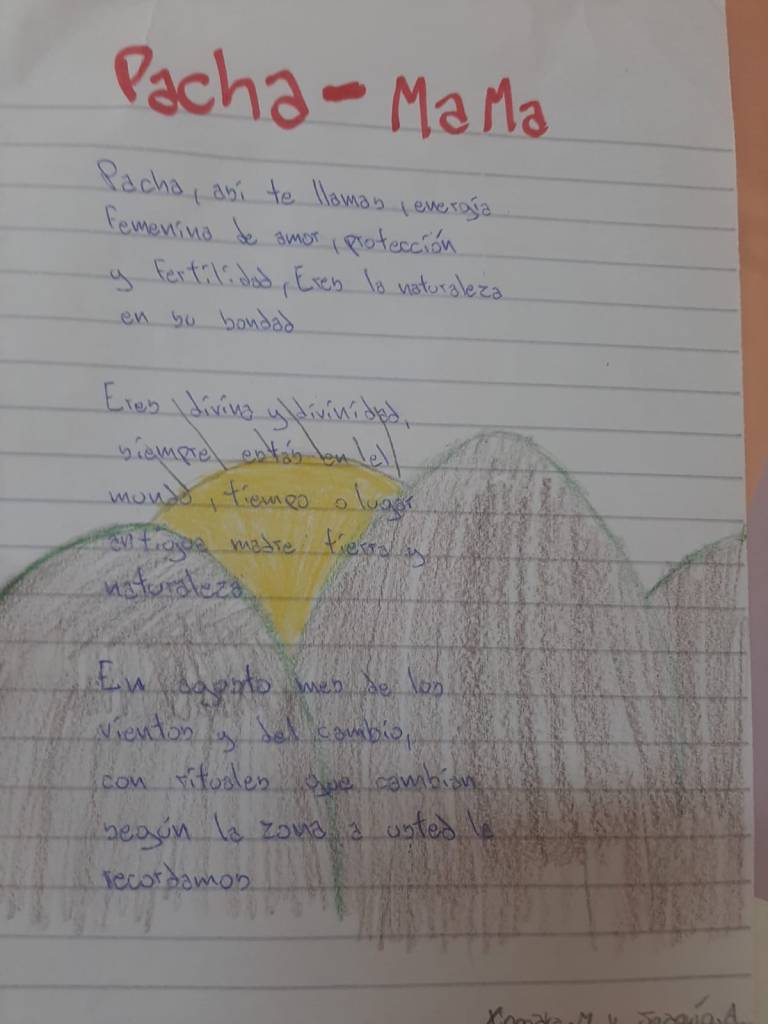 Pacha - MaMa
Pacha, así te llaman, energía
Femenina de amor, protección
y Fertilidad, Eres la naturaleza
en su bondad
Eres divina y divinidad,
siempre estás en el
mundo, tiempo o lugar
antigua madre tierra y
naturaleza
En agosto mes de los
vientos y del cambio,
con rituales que cambian
según la zona a usted le
recordamos
M. y Joaquín. A